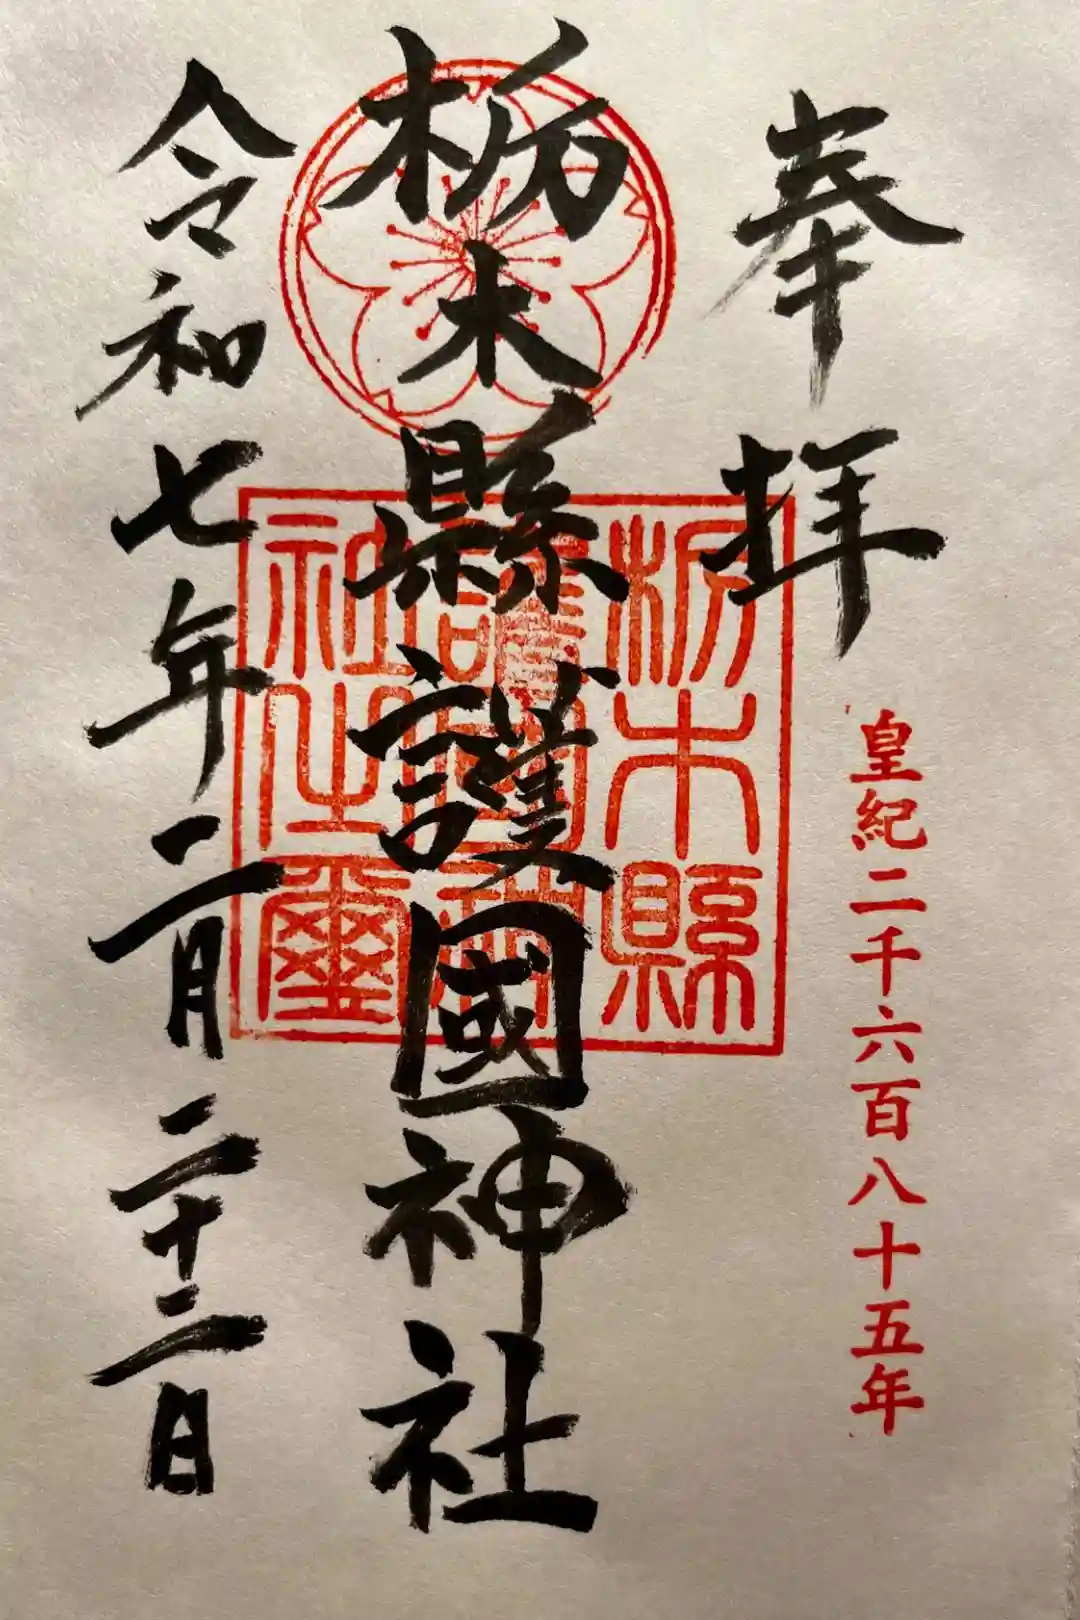 奉拝
皇紀二千六百八十五年
栃木縣護國神社
栃木縣
護國神
社之璽
令和七年二月二十二日